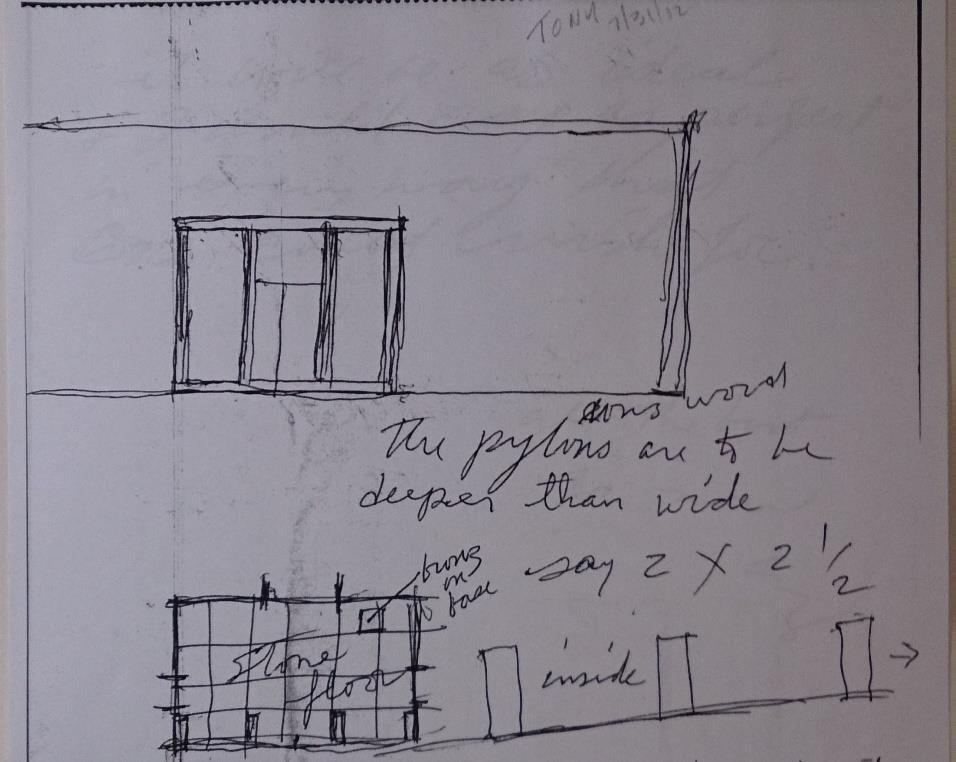 TONY 7/31/12
word
The pylons are to be
deeper than wide
say 2 X 2 1/2
on
base
Stone
floor
inside